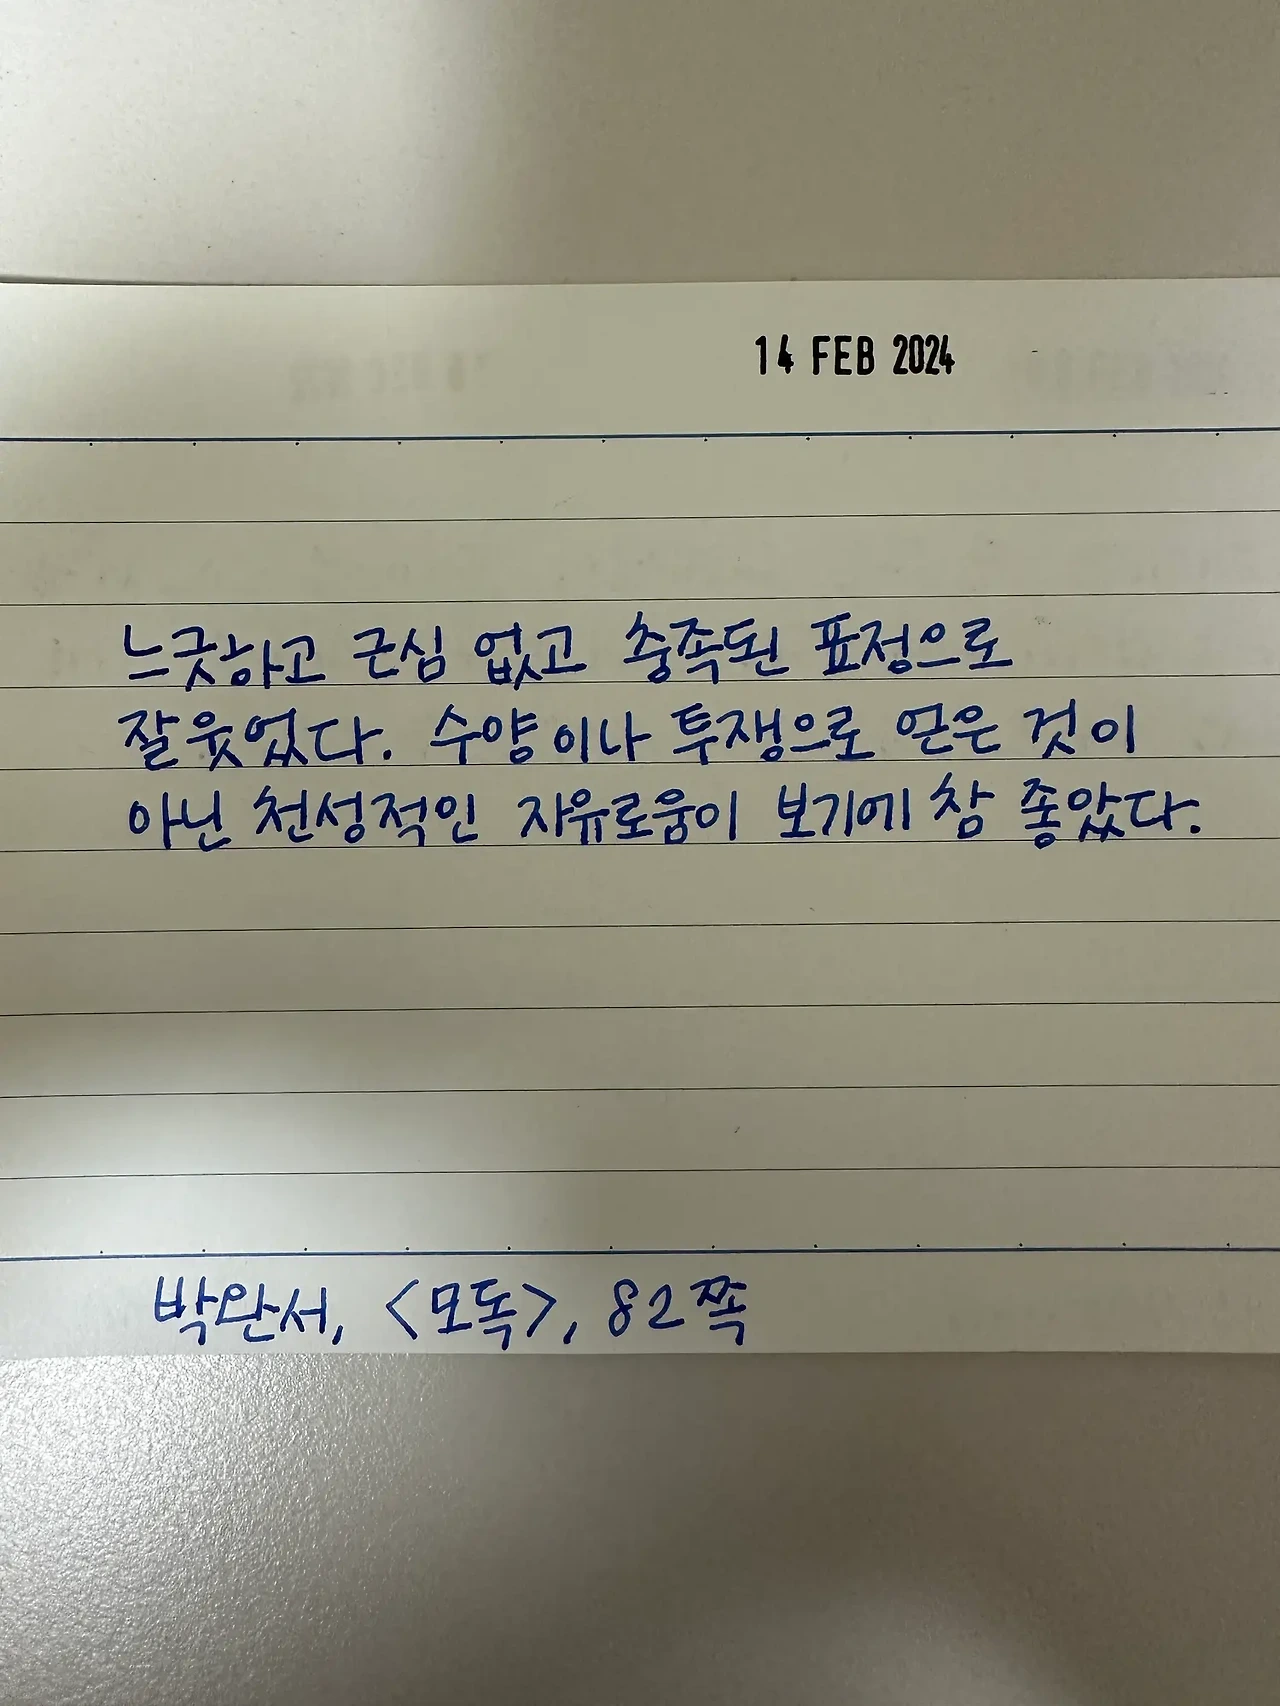 14 FEB 2024
느긋하고 근심 없고 충족된 표정으로
잘 웃었다. 수양이나 투쟁으로 얻은 것이
아닌 천성적인 자유로움이 보기에 참 좋았다.
박완서, <모독>, 82쪽